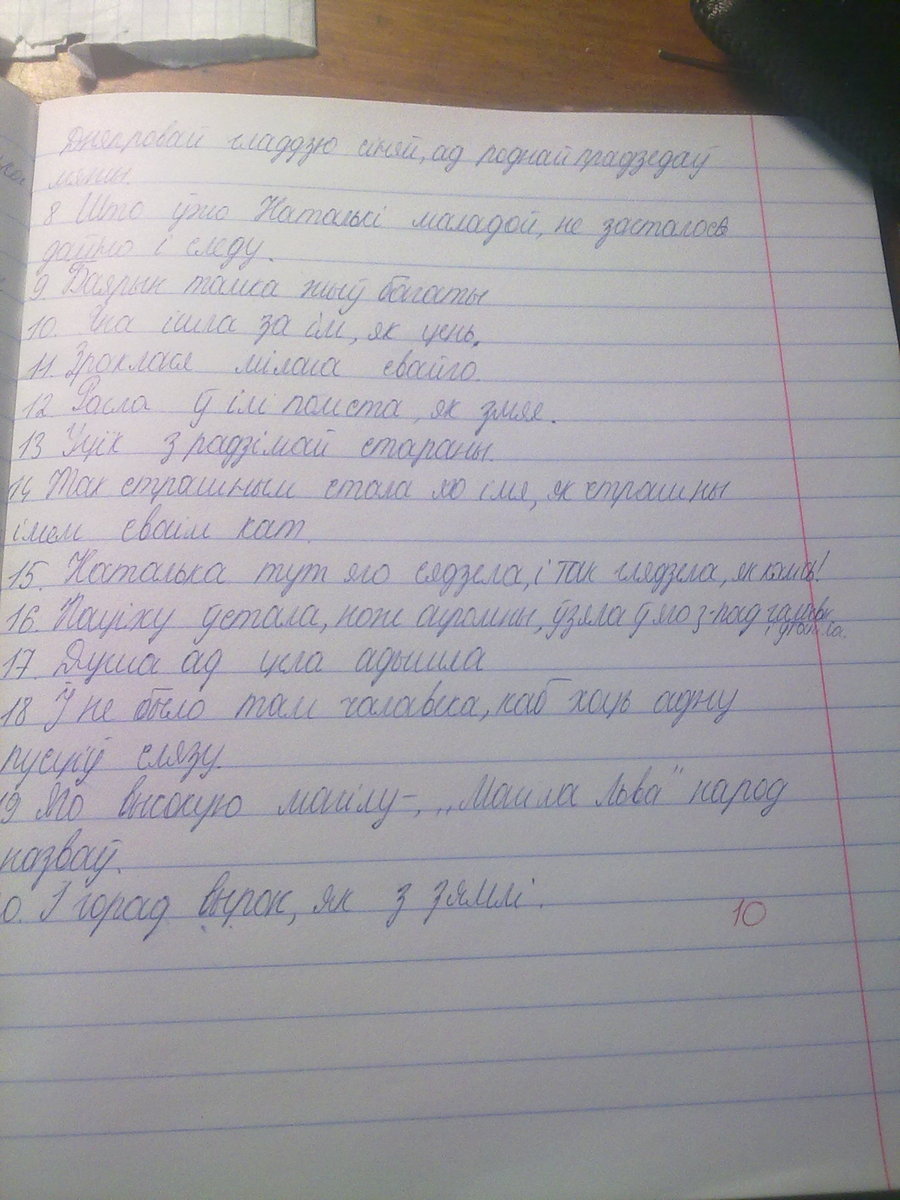 Дняпровай гладдзю сіняй, ад роднай прадзедаў
мяжы.
8 Што ўжо Наталькі маладой, не засталось
даўно і следу.
9. Баярын тамка жыў багаты
10. Яна ішла за ім, як цень.
11. Зраклася мілага свайго.
12 Расла ў ім помста, як змяя.
13 Уцёк з радзімай стараны.
14 Так страшным стала яго імя, як страшны
імем сваім кат.
15. Наталька тут яго сядзела, і так глядзела, як
16. Паціху ўстала, нож агромны, ўзяла ў яго з-пад галавы
17 Душа ад цела адышла
18 Ў не было там чалавека, каб хоць адну
пусціў слязу.
19 Яго высокую магілу –, „Магіла Льва" народ
назваў.
0. І горад вырас, як з зямлі.
10